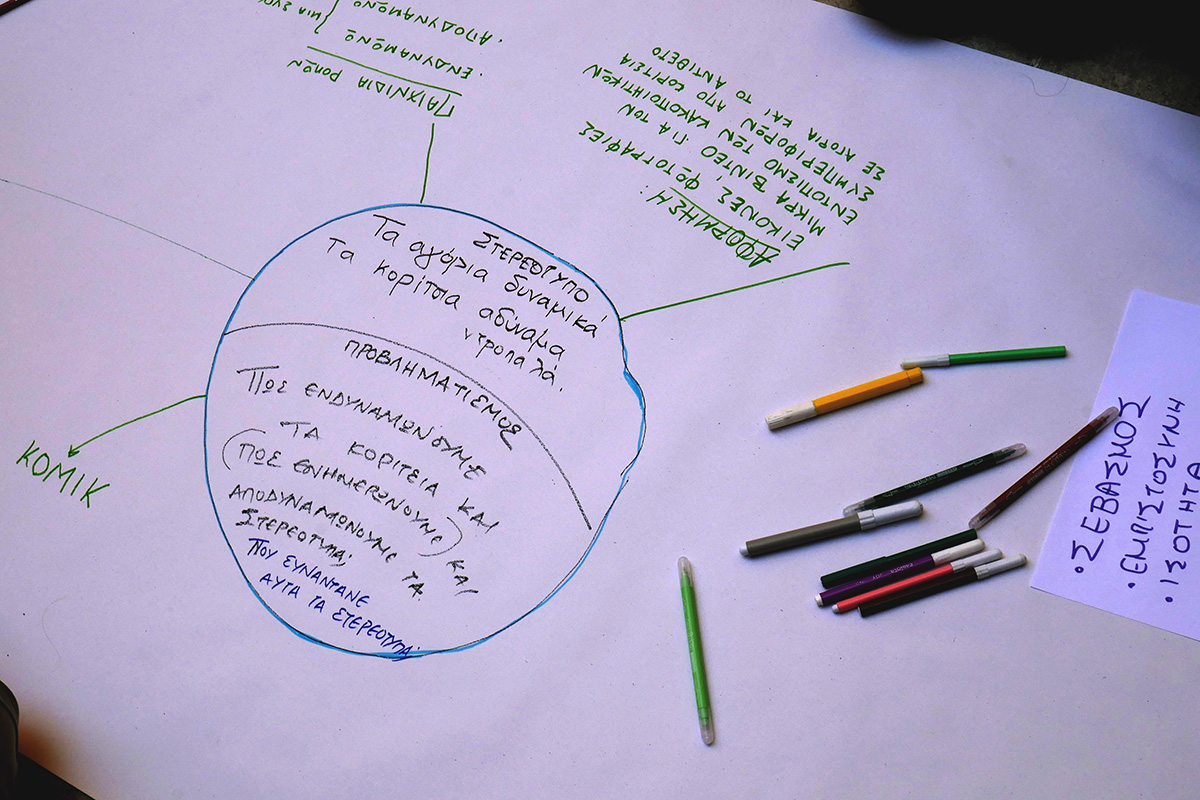 ΠΑΙΧΝΙΔΙΑ ΡΟΠΩΝ
· ΕΝΔΥΝΑΜΩΝΩ
· ΑΠΟΔΥΝΑΜΩΝΩ
ΜΙΑ
ΑΦΟΡΜΗΣΗ:
ΕΙΚΟΝΕΣ, ΦΩΤΟΓΡΑΦΙΕΣ
ΜΙΚΡΑ ΒΙΝΤΕΟ ΓΙΑ ΤΟΝ
ΕΝΤΟΠΙΣΜΟ ΤΩΝ ΚΑΚΟΠΟΙΗΤΙΚΩΝ
ΣΥΜΠΕΡΙΦΟΡΩΝ ΑΠΟ ΚΟΡΙΤΣΙΑ
ΣΕ ΑΓΟΡΙΑ ΚΑΙ ΤΟ ΑΝΤΙΘΕΤΟ
ΣΤΕΡΕΟΤΥΠΟ
Τα αγόρια δυναμικά
Τα κορίτσια αδύναμα
ντροπαλά.
ΠΡΟΒΛΗΜΑΤΙΣΜΟΣ
ΠΩΣ ΕΝΔΥΝΑΜΩΝΟΥΜΕ
ΤΑ ΚΟΡΙΤΣΙΑ ΚΑΙ
(ΠΩΣ ΕΝΗΜΕΡΩΝΟΥΝΕ) ΚΑΙ
ΑΠΟΔΥΝΑΜΩΝΟΥΜΕ ΤΑ
ΣΤΕΡΕΟΤΥΠΑ;
ΠΟΥ ΣΥΝΑΝΤΑΝΕ
ΑΥΤΑ ΤΑ ΣΤΕΡΕΟΤΥΠΑ;
ΚΟΜΙΚ
· ΣΕΒΑΣΜΟΣ
· ΕΜΠΙΣΤΟΣΥΝΗ
· ΙΣΟΤΗΤΑ